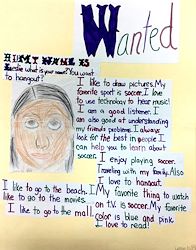 Wanted
HI MY NAME IS
what is your name? You want
to hangout?
I like to draw pictures. My
favorite sport is soccer. I love
to use technology to hear music!
I am a good listener. I
am also good at understanding
my friends problems. I always
look for the best in people. I
can help you to learn about
soccer.
I enjoy playing soccer.
Traveling with my family. Also
I love to hangout.
I like to go to the beach. My favorite thing to watch
like to go to the movies. on T.V. is soccer. My favorite
I like to go to the mall. color is blue and pink
I love to read!